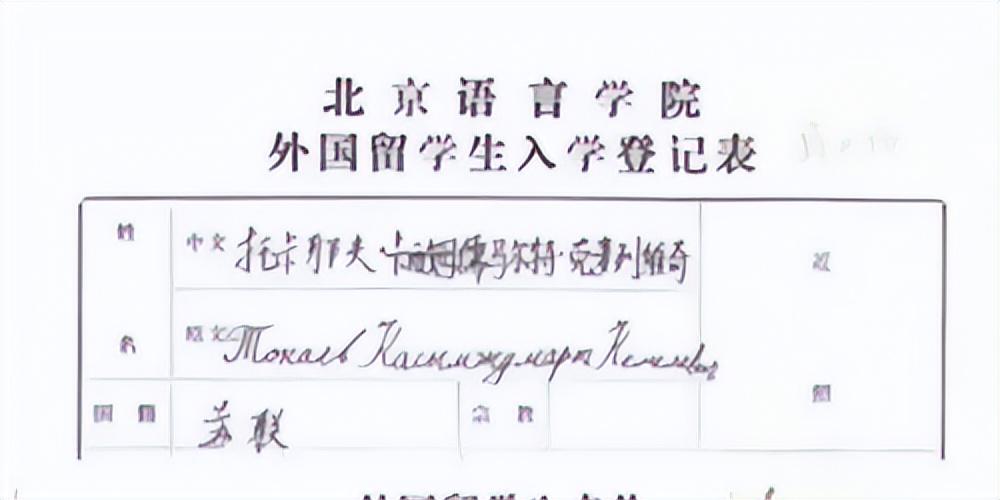 北京语言学院
外国留学生入学登记表
姓名 中文 托卡耶夫·卡 马尔特·克 列维奇
原文 Токаев Касымждмарт
国籍 苏联 宗教
照